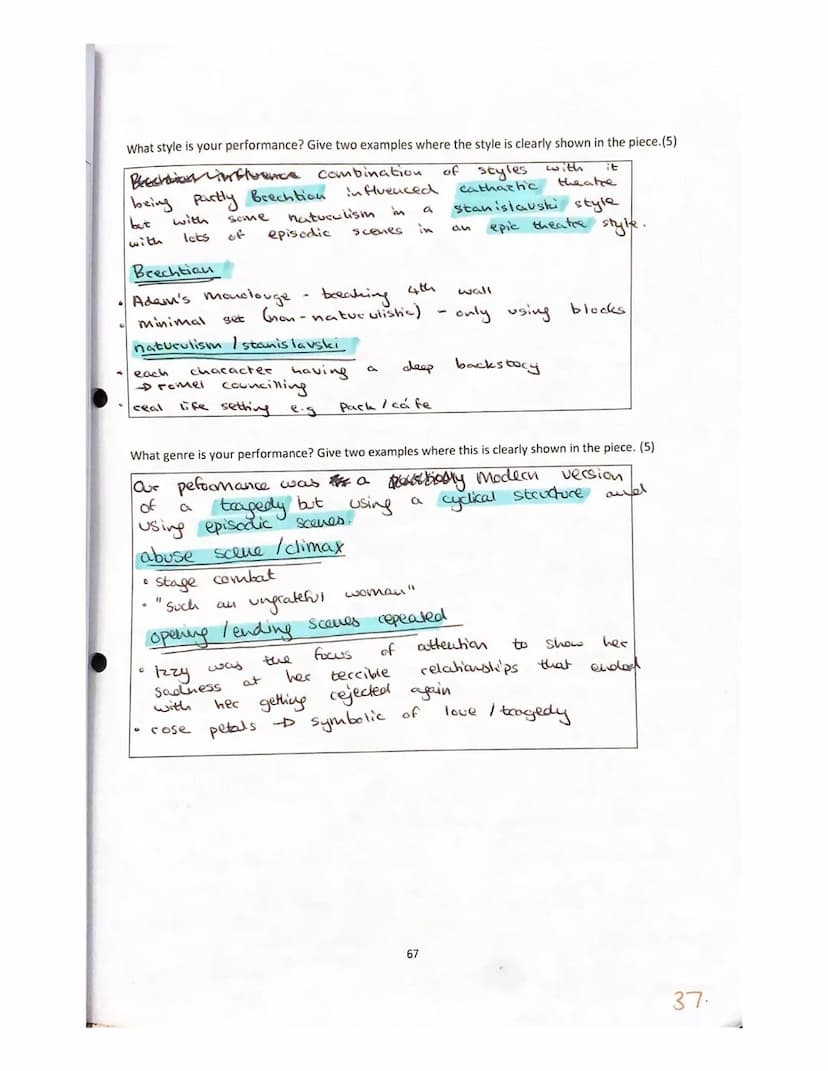 What style is your performance? Give two examples where the style is clearly shown in the piece.(5)
Brechtian influence combination of styles with it
being partly Brechtian influenced cathartic theatre
but with some naturulism in a stanislavski style
with lots of episodic scenes in an epic theatre style.
Brechtian
• Adam's monolouge - breaking 4th wall
• minimal set (non-naturulistic) - only using blocks
naturulism / stanislavski
• each character having a deep backstory
→ romel councilling
• real life setting e.g park / café
What genre is your performance? Give two examples where this is clearly shown in the piece. (5)
Our peformance was a Modern version
of a tragedy but using a cyclical structure and
using episodic scenes.
abuse scene / climax
• stage combat
• "such an ungrateful woman"
opening / ending scenes repeated
• Izzy was the focus of attention to show her
sadness at her terrible relationships that ended
with her getting rejected again
• rose petals → symbolic of love / tragedy
67
37.